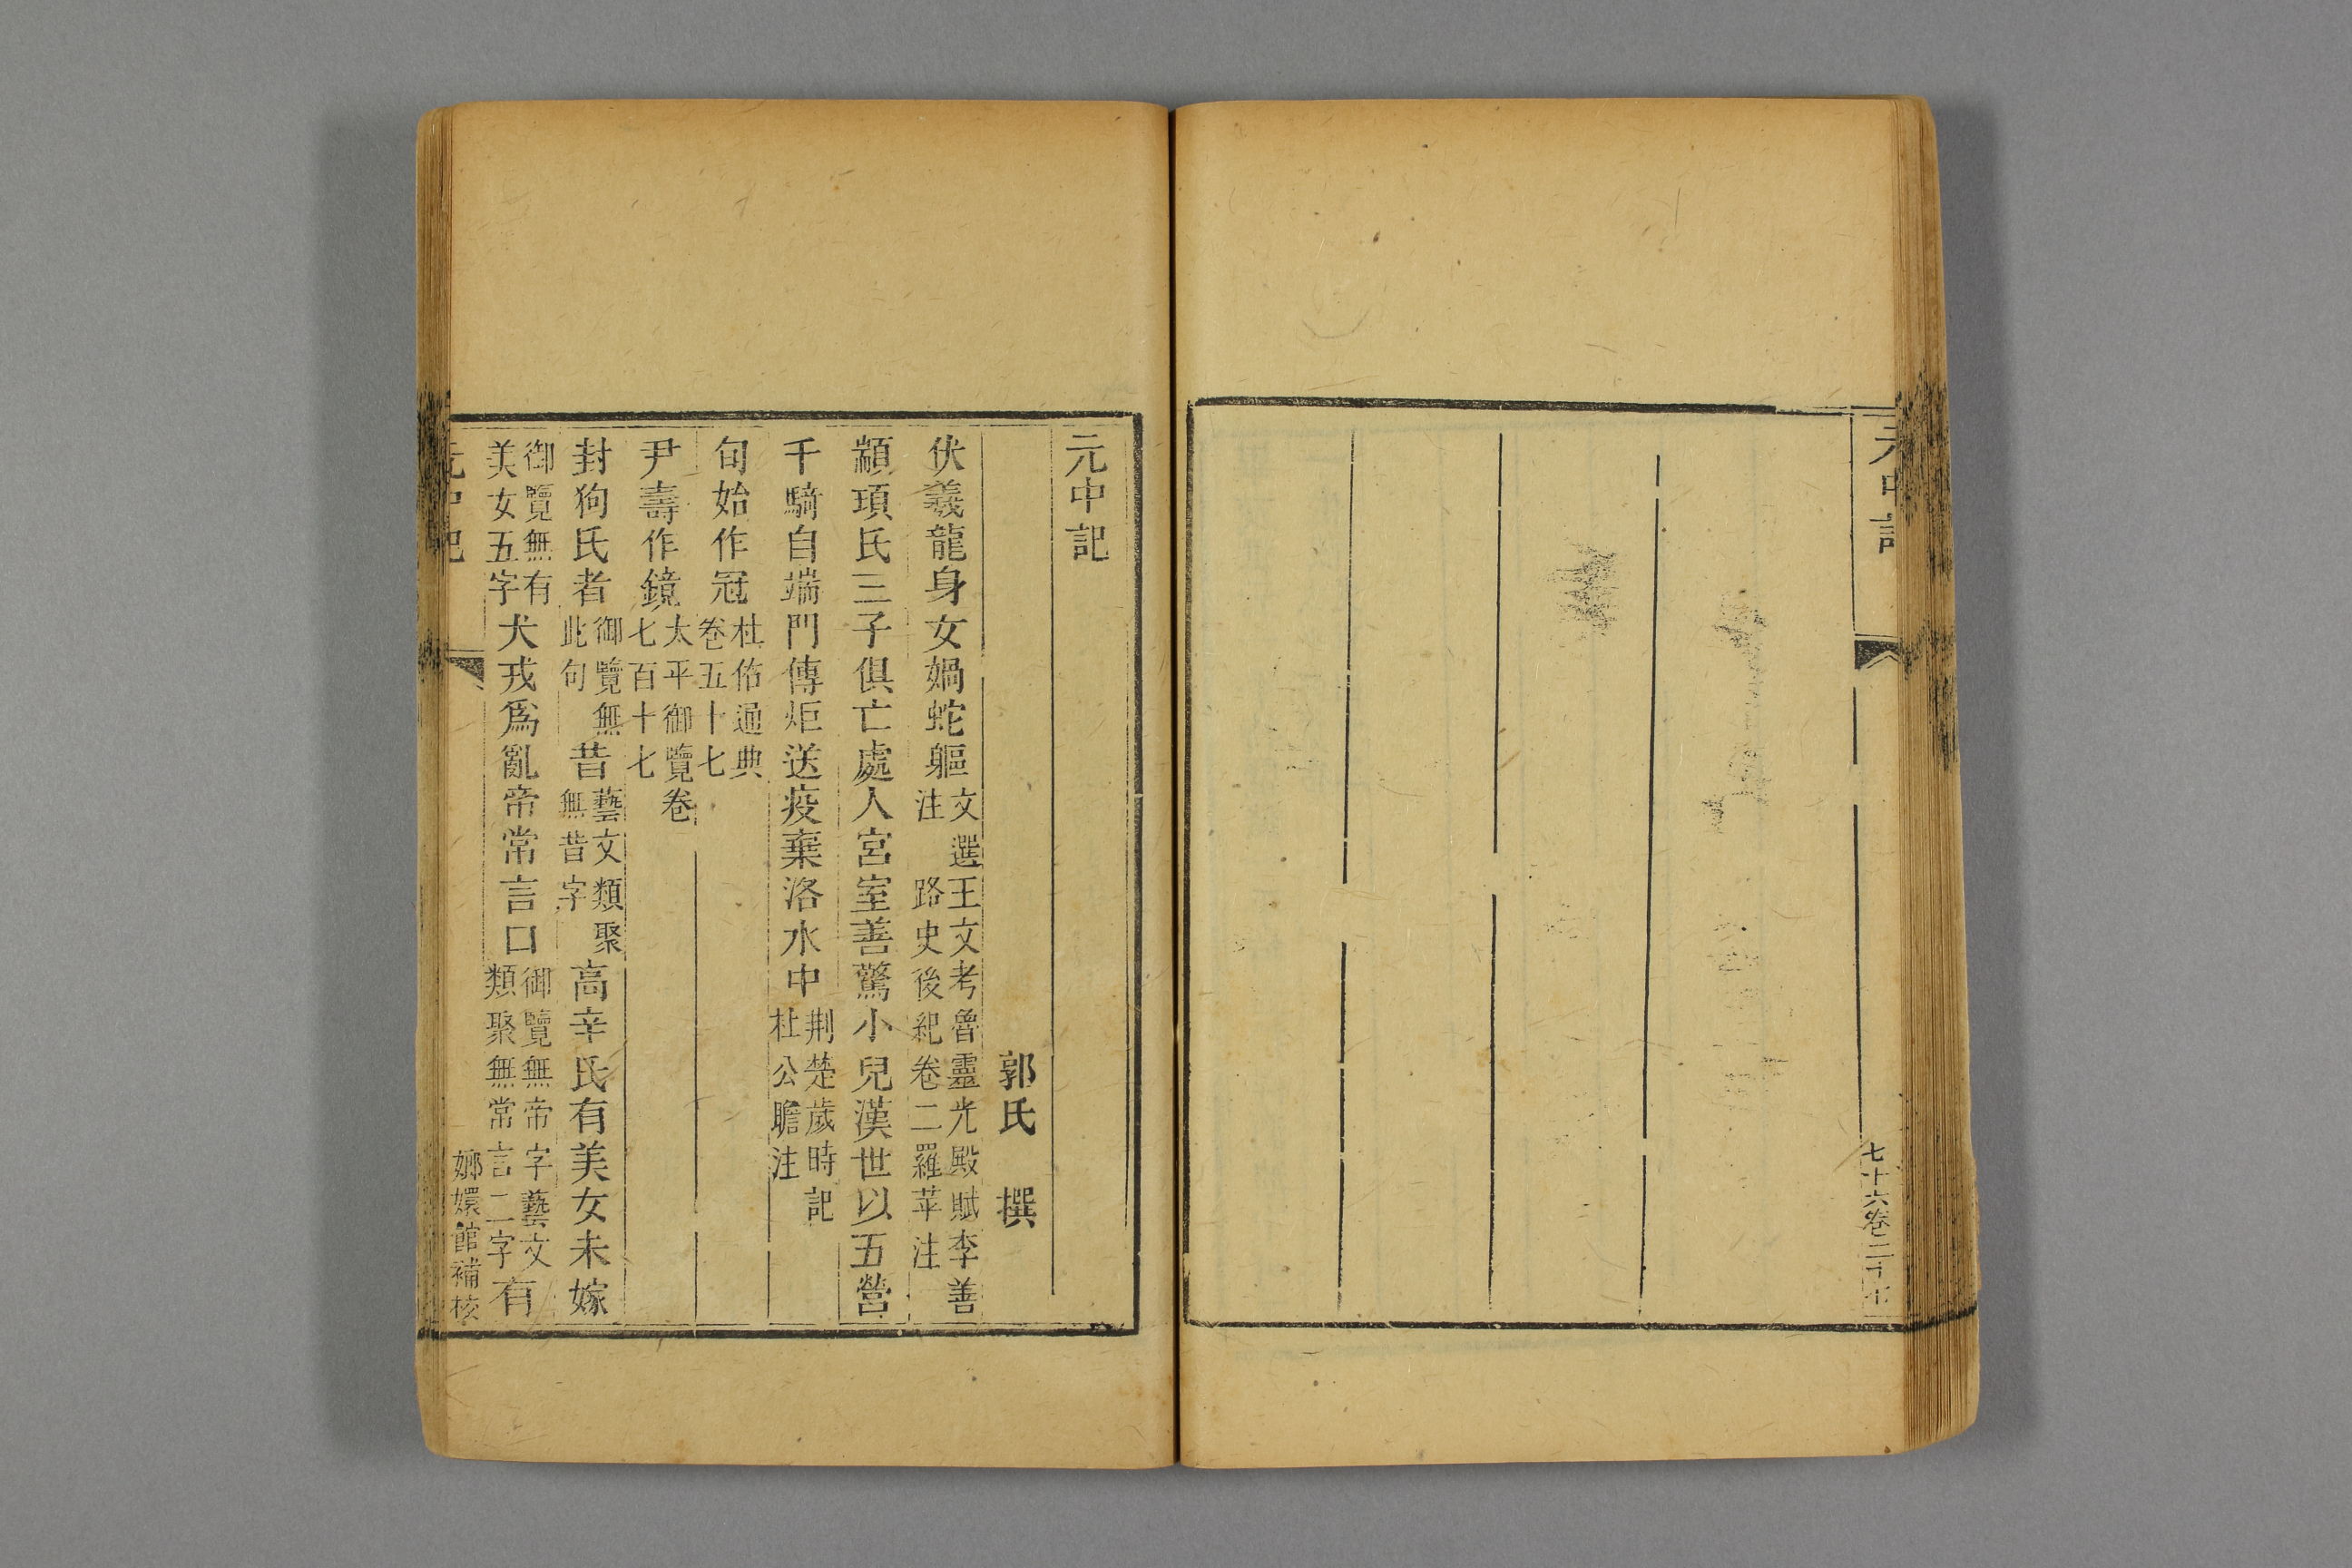 元中記
七十六卷二十
元中記
郭氏　撰
伏羲龍身女媧蛇軀文選王文考魯靈光殿賦李善注　路史後紀卷二羅苹注
顓頊氏三子俱亡處人宮室善驚小兒漢世以五營
千騎自端門傳炬送疫棄洛水中荆楚歲時記杜公瞻注
句始作冠杜佑通典卷五十七
尹壽作鏡太平御覽卷七百十七
封狗氏者御覽無此句昔藝文類聚無昔字高辛氏有美女未嫁
御覽無有美女五字犬戎爲亂帝常言口御覽無帝字藝文類聚無常言二字有
元中記
嫏嬛館補校